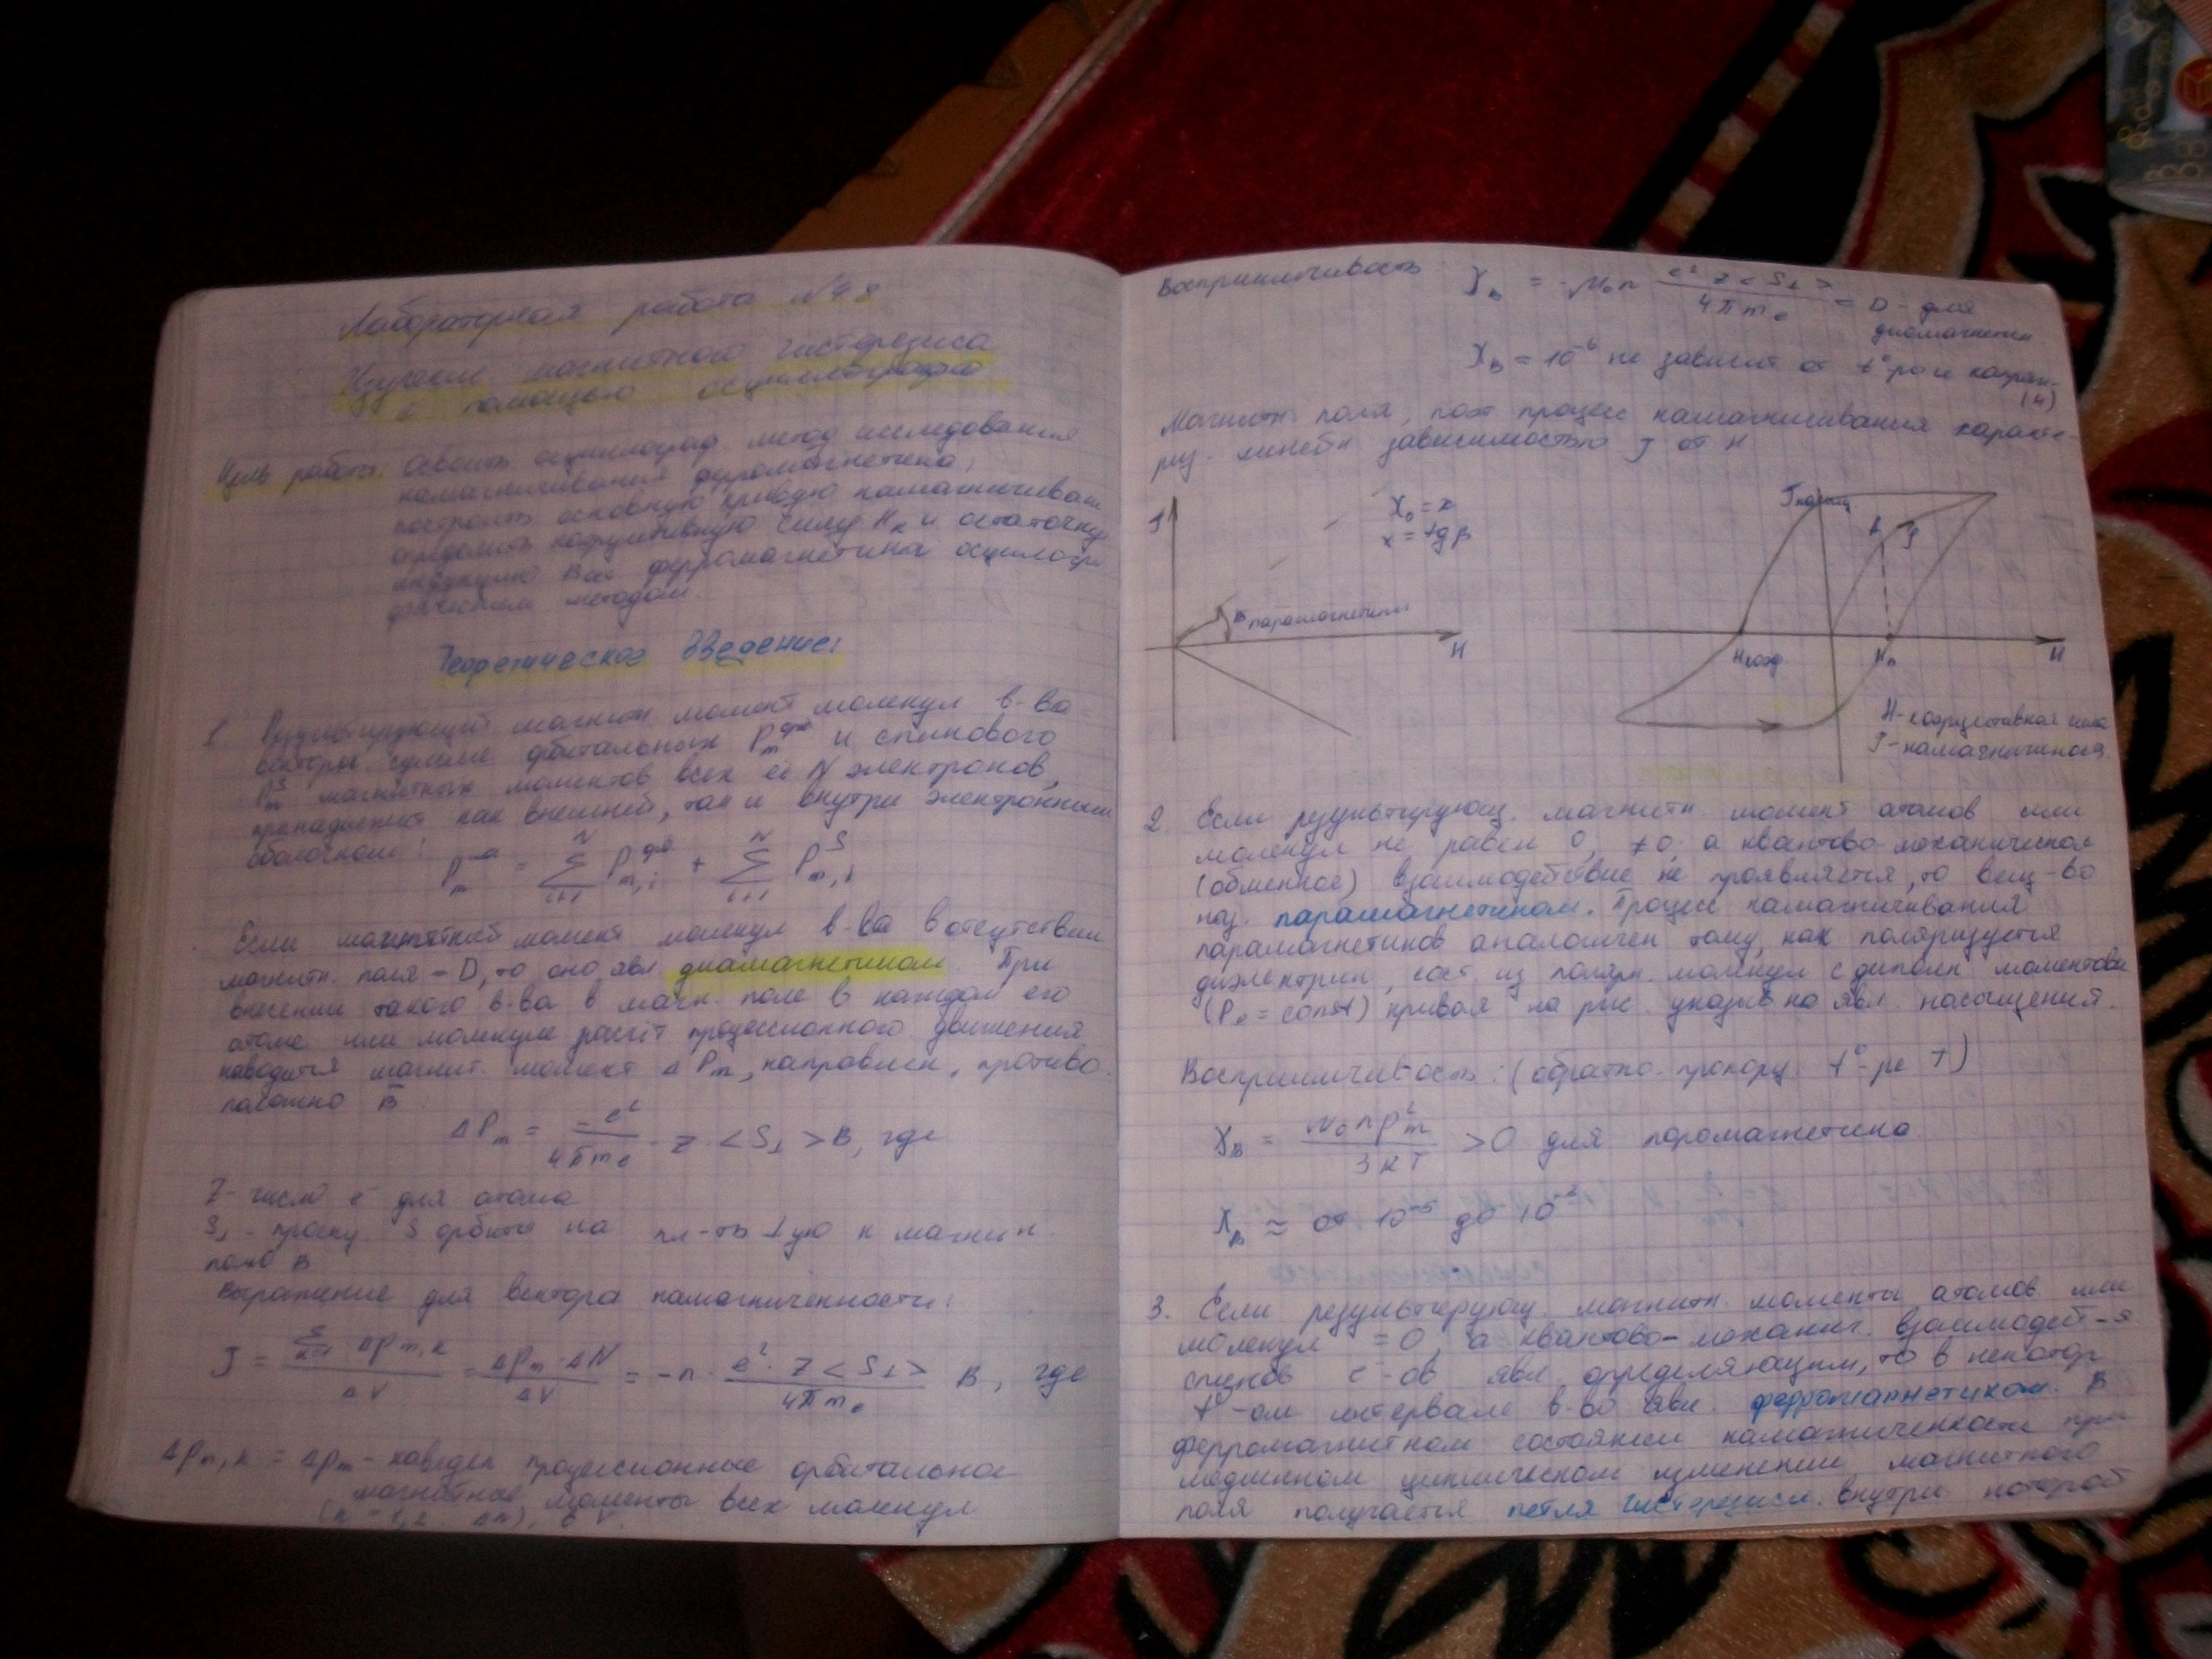 Лабораторная работа №48
Изучение магнитного гистерезиса
с помощью осциллографа
Цель работы: Освоить осциллограф. метод исследования
намагничивания ферромагнетика,
построить основную кривую намагничивани
определить коэрцитивную силу Hк и остаточну
индукцию Bост ферромагнетика осцилогра
фическим методом.
Теоретическое введение:
1 Результирующий магнитн момент молекул в-ва
векторн. сумме орбитальных Pm орб и спинового
Pm S магнитных моментов всех её N электронов,
принадлежит как внешней, так и внутри электронным
оболочкам:
Pm = Σ Pm,i орб + Σ Pm,i S
Если магнитный момент молекул в-ва в отсутствии
магнитн. поля = 0, то оно явл диамагнетиком. При
внесении такого в-ва в магн. поле в каждом его
атоме или молекуле расчёт процессионного движения
наводится магнит. момент ΔPm, направлен, противо
положно B
ΔPm = -e²/4πme · Z · <S⊥> B, где
Z - число e⁻ для атома
S⊥ - проекц S орбиты на пл-ть ⊥ую к магнитн.
полю B
Выражение для вектора намагниченности:
J = Σ ΔPm,k / ΔV = ΔPm·ΔN / ΔV = -n · e²·Z<S⊥> / 4πme B, где
ΔPm,k = ΔPm - наведен процессионные орбитальное
магнитное моменты всех молекул
Восприимчивость χB = -μ0n e²Z<S⊥> / 4πme = D - для
диамагнетик
χB = 10⁻⁶ не зависит от t° ры и напряж-
(H)
Магнитн. поля, поэт процесс намагничивания характе-
риз. линейн зависимостью J от H
J
χ0 = x
x = tg β
парамагнетики
H
Jнасыщ
A
J
Hкоэр
H
H-коэрцитивная сила
J-намагниченная
2. Если результирующ. магнитн. момент атомов или
молекул не равен 0, ≠0, а квантово-механическое
(обменное) взаимодействие не проявляется, то вещ-во
наз. парамагнетиком. Процесс намагничивания
парамагнетиков аналогичен тому, как поляризуется
диэлектрик, сост. из полярн. молекул с диполн моментами
(P0 = const) кривая на рис. указыв на явл. насыщения.
Восприимчивость: (обратно-пропорц. t°-ре T)
χB = μ0nP²m / 3kT >0 для парамагнетика
χB ≈ от 10⁻⁵ до 10⁻³
3. Если результирующ. магнитн. моменты атомов или
молекул = 0, а квантово-механич. взаимодей-я
спинов e⁻-ов явл. определяющим, то в некотор
t°-ом интервале в-во явл. ферромагнетиком. В
ферромагнитном состоянии намагниченности при
медленном циклическом изменении магнитного
поля получается петля гистерезиса. внутри которой